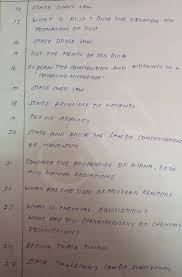 12 STATE OHM'S LAW.
13 WHAT IS RUST? GIVE THE EQUATION FOR
FORMATION OF RUST
14 STATE JOULE'S LAW.
15 LIST THE MERITS OF
16 EXPLAIN THE CONSTRUCTION AND WORKING OF A
COMPOUND MICROSCOPE
17 STATE OHM'S LAW
18 STATE PRINCIPLE OF MOMENTS
19 DEFINE
20 STATE AND PROVE THE LAW OF CONSERVATION
OF MOMENTUM
21 COMPARE THE PROPERTIES OF ALPHA, BETA
AND GAMMA RADIATIONS
22 WHAT ARE THE USES OF NUCLEAR REACTORS
23 WHAT IS CHEMICAL EQUILIBRIUM?
WHAT ARE ITS CHARACTERISTICS OF CHEMICAL
EQUILIBRIUM?
24 DEFINE
25 STATE LAW OF